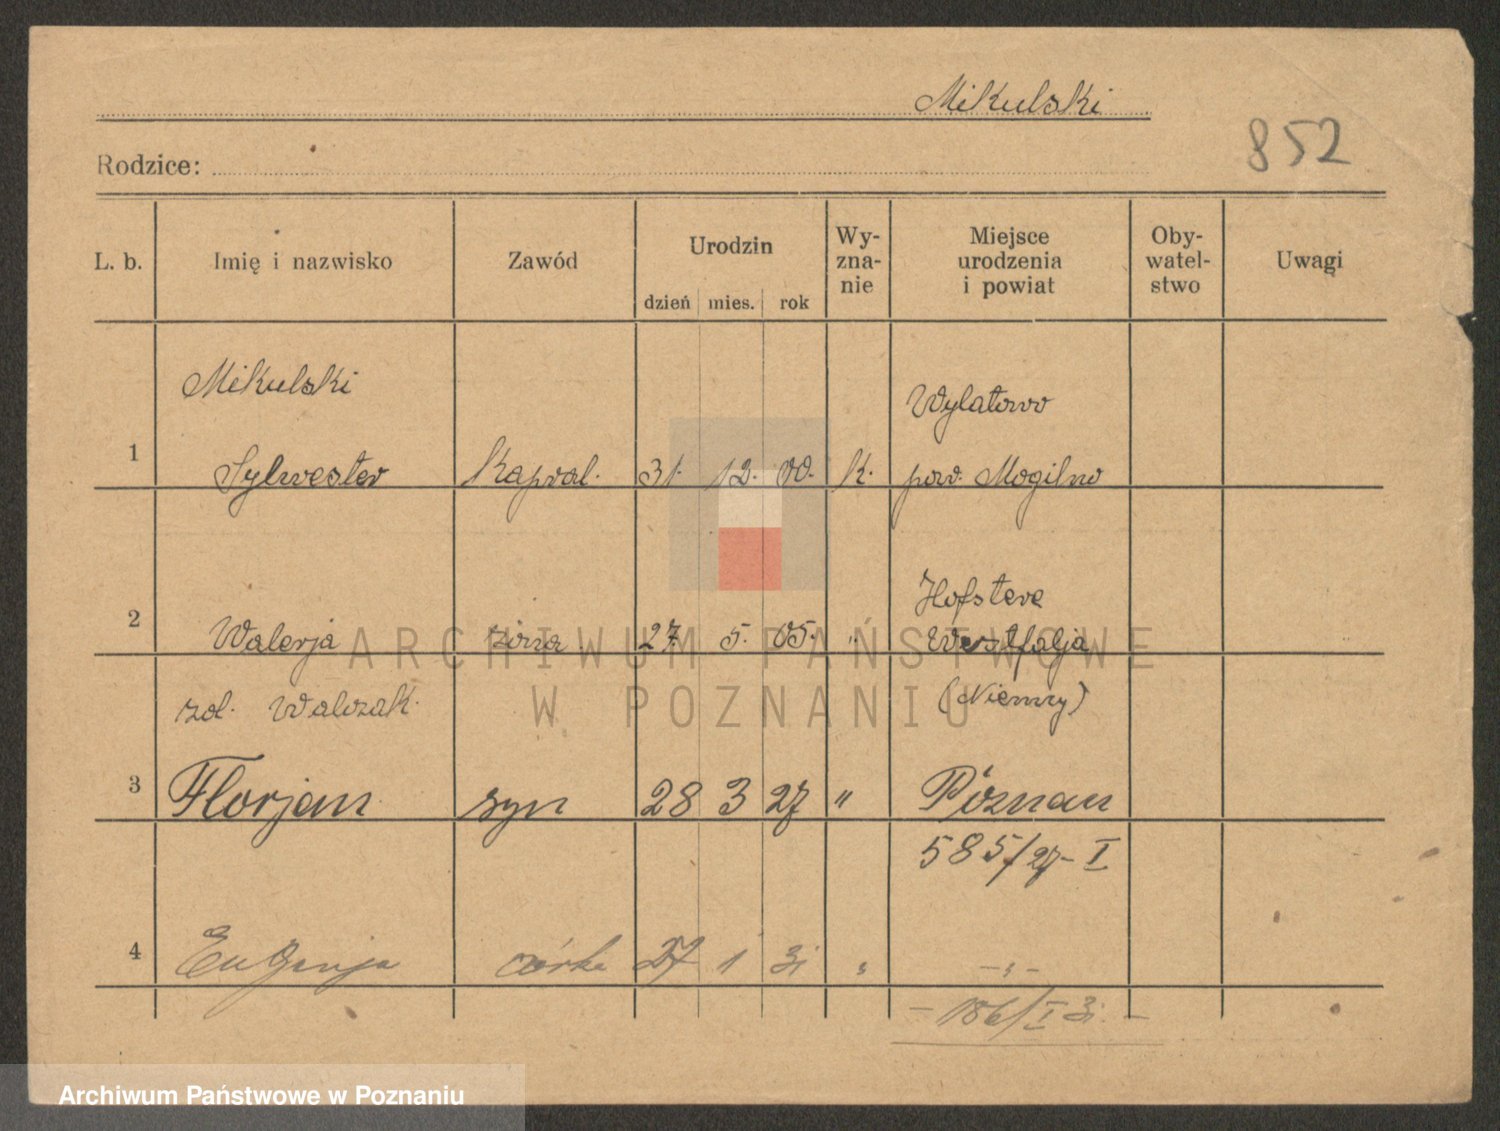 Mikulski
852
Rodzice:
L. b. Imię i nazwisko Zawód Urodzin dzień mies. rok Wy-zna-nie Miejsce urodzenia i powiat Oby-watel-stwo Uwagi
Mikulski Wylatowo
1 Sylwester Kapral. 31. 12. 00. K. pow. Mogilno
Hofstere
2 Walerja żona 27. 5. 05. " Westfalja
zol. Walczak. (Niemcy)
3 Florjan syn 28 3 27 " Poznań
585/27-I
4 Eugenja córka 27 1 31 " -"-
-186/I 31.-
ARCHIWUM PAŃSTWOWE
W POZNANIU
Archiwum Państwowe w Poznaniu